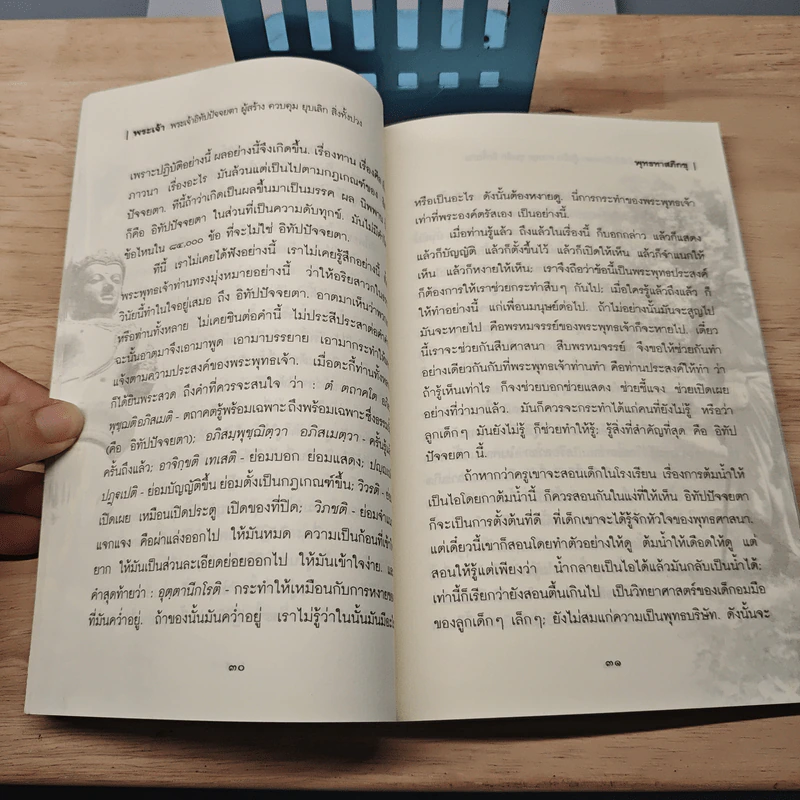 พระเจ้า พระเจ้าอิทัปปัจจยตา ผู้สร้าง ควบคุม ยุบเลิก สิ่งทั้งปวง
เพราะปฏิบัติอย่างนี้ ผลอย่างนี้จึงเกิดขึ้น. เรื่องทาน เรื่องศีล
ภาวนา เรื่องอะไร มันล้วนแต่เป็นไปตามกฎเกณฑ์ของ
ปัจจยตา. ทีนี้ถ้าว่าเกิดเป็นผลขึ้นมาเป็นมรรค ผล นิพพาน
ก็คือ อิทัปปัจจยตา ในส่วนที่เป็นความดับทุกข์. มันไม่มี
ข้อไหนใน ๘๔,๐๐๐ ข้อ ที่จะไม่ใช่ อิทัปปัจจยตา.
ทีนี้ เราไม่เคยได้ฟังอย่างนี้ เราไม่เคยรู้สึกอย่างนี้
พระพุทธเจ้าท่านทรงมุ่งหมายอย่างนี้ ว่าให้อริยสาวกใน
วินัยนี้ทำในใจอยู่เสมอ ถึง อิทัปปัจจยตา. อาตมาเห็นว่า
หรือท่านทั้งหลาย ไม่เคยชินต่อคำนี้ ไม่ประสีประสาต่อคำ
ฉะนั้นอาตมาจึงเอามาพูด เอามาบรรยาย เอามากระทำให้
แจ้งตามความประสงค์ของพระพุทธเจ้า. เมื่อตะกี้ท่านทั้ง
ก็ได้ยินพระสวด ถึงคำที่ควรจะสนใจ ว่า : ตํ ตถาคโต
พุชฺฌติอภิสเมติ - ตถาคตรู้พร้อมเฉพาะถึงพร้อมเฉพาะซึ่ง
(คือ อิทัปปัจจยตา); อภิสมฺพุชฺฌิตฺวา อภิสเมตฺวา - ครั้นรู้
ครั้นถึงแล้ว; อาจิกฺขติ เทเสติ - ย่อมบอก ย่อมแสดง;
ปฏฺฐเปติ - ย่อมบัญญัติขึ้น ย่อมตั้งเป็นกฎเกณฑ์ขึ้น; วิวรติ -
เปิดเผย เหมือนเปิดประตู เปิดของที่ปิด; วิภชติ - ย่อม
แจกแจง คือผ่าแล่งออกไป ให้มันหมด ความเป็นก้อนที่
ยาก ให้มันเป็นส่วนละเอียดย่อยออกไป ให้มันเข้าใจง่าย.
คำสุดท้ายว่า : อุตฺตานีกโรติ - กระทำให้เหมือนกับการหงาย
ที่มันคว่ำอยู่. ถ้าของนั้นมันคว่ำอยู่ เราไม่รู้ว่าในนั้นมันมีอะไร
๓๐
พุทธทาสภิกขุ
หรือเป็นอะไร ดังนั้นต้องหงายดู. นี่การกระทำของพระพุทธเจ้า
เท่าที่พระองค์ตรัสเอง เป็นอย่างนี้.
เมื่อท่านรู้แล้ว ถึงแล้วในเรื่องนี้ ก็บอกกล่าว แล้วก็แสดง
แล้วก็บัญญัติ แล้วก็ตั้งขึ้นไว้ แล้วก็เปิดให้เห็น แล้วก็จำแนกให้
เห็น แล้วก็หงายให้เห็น; เราจึงถือว่าข้อนี้เป็นพระพุทธประสงค์
ก็ต้องการให้เราช่วยกระทำสืบๆ กันไป; เมื่อใครรู้แล้วถึงแล้ว ก็
ให้ทำอย่างนี้ แก่เพื่อนมนุษย์ต่อไป. ถ้าไม่อย่างนั้นมันจะสูญไป
มันจะหายไป คือพรหมจรรย์ของพระพุทธเจ้าก็จะหายไป. เดี๋ยว
นี้เราจะช่วยกันสืบศาสนา สืบพรหมจรรย์ จึงขอให้ช่วยกันทำ
อย่างเดียวกันกับที่พระพุทธเจ้าท่านทำ คือท่านประสงค์ให้ทำ ว่า
ถ้ารู้ขึ้นเท่าไร ก็จงช่วยบอกช่วยแสดง ช่วยชี้แจง ช่วยเปิดเผย
อย่างที่ว่ามาแล้ว. มันก็ควรจะกระทำได้แก่คนที่ยังไม่รู้ หรือว่า
ลูกเด็กๆ มันยังไม่รู้ ก็ช่วยทำให้รู้; รู้สิ่งที่สำคัญที่สุด คือ อิทัป
ปัจจยตา นี้.
ถ้าหากว่าครูเขาจะสอนเด็กในโรงเรียน เรื่องการต้มน้ำให้
เป็นไอโดยกาต้มน้ำนี้ ก็ควรสอนกันในแง่ที่ให้เห็น อิทัปปัจจยตา
ก็จะเป็นการตั้งต้นที่ดี ที่เด็กเขาจะได้รู้จักหัวใจของพุทธศาสนา.
แต่เดี๋ยวนี้เขาก็สอนโดยทำตัวอย่างให้ดู ต้มน้ำให้เดือดให้ดู แต่
สอนให้รู้แต่เพียงว่า น้ำกลายเป็นไอได้แล้วมันกลับเป็นน้ำได้;
เท่านี้ก็เรียกว่ายังสอนตื้นเกินไป เป็นวิทยาศาสตร์ของเด็กอมมือ
ของลูกเด็กๆ เล็กๆ; ยังไม่สมแก่ความเป็นพุทธบริษัท. ดังนั้นจะ
๓๑